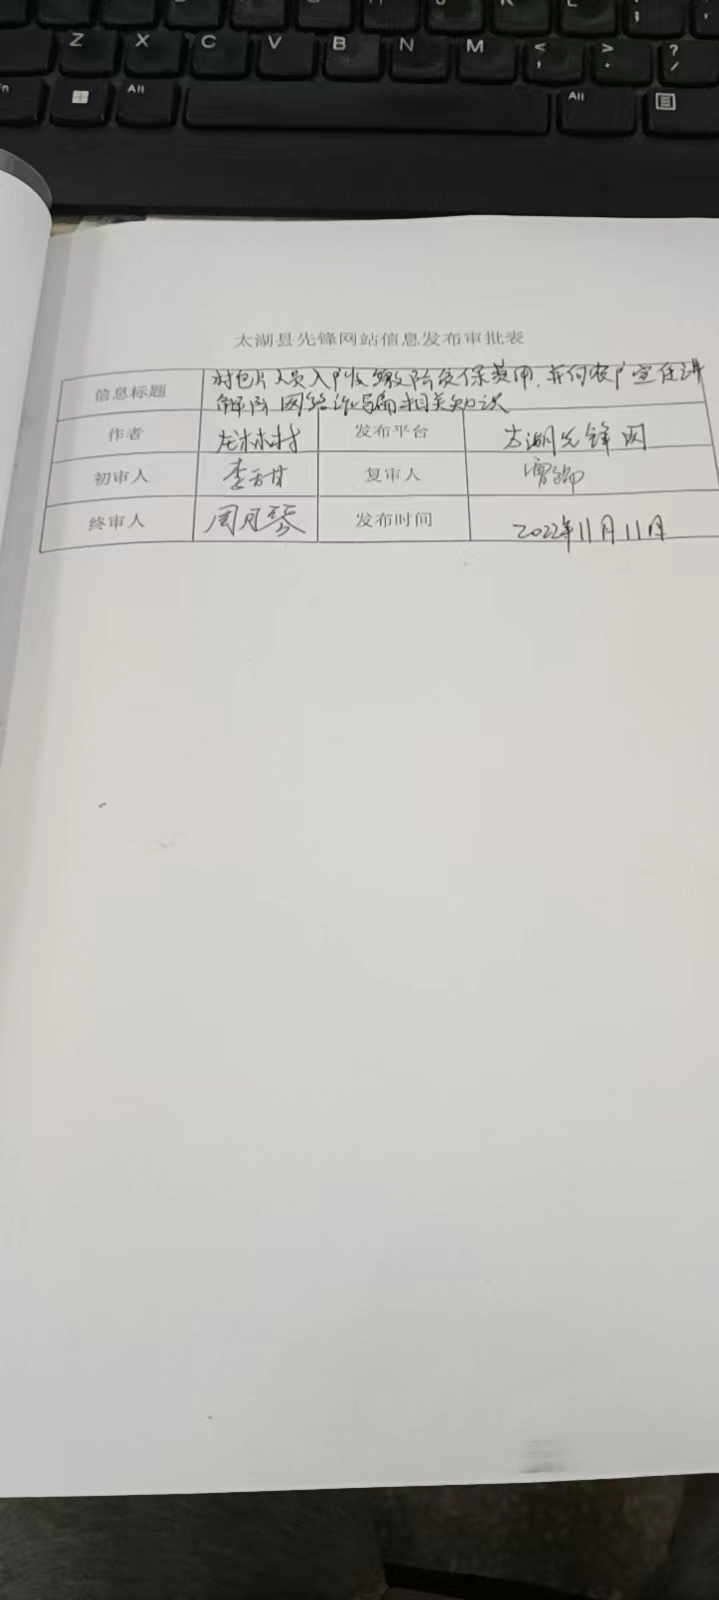 Z X C V B N M < , > . ? /
Alt Alt
太湖县先锋网站信息发布审批表
信息标题 村包片人员入户收缴医保费用,并向农户宣传讲
解防网络诈骗相关知识
作者 发布平台 太湖先锋网
初审人 李甜甜 复审人
终审人 周月琴 发布时间 2022年11月11日